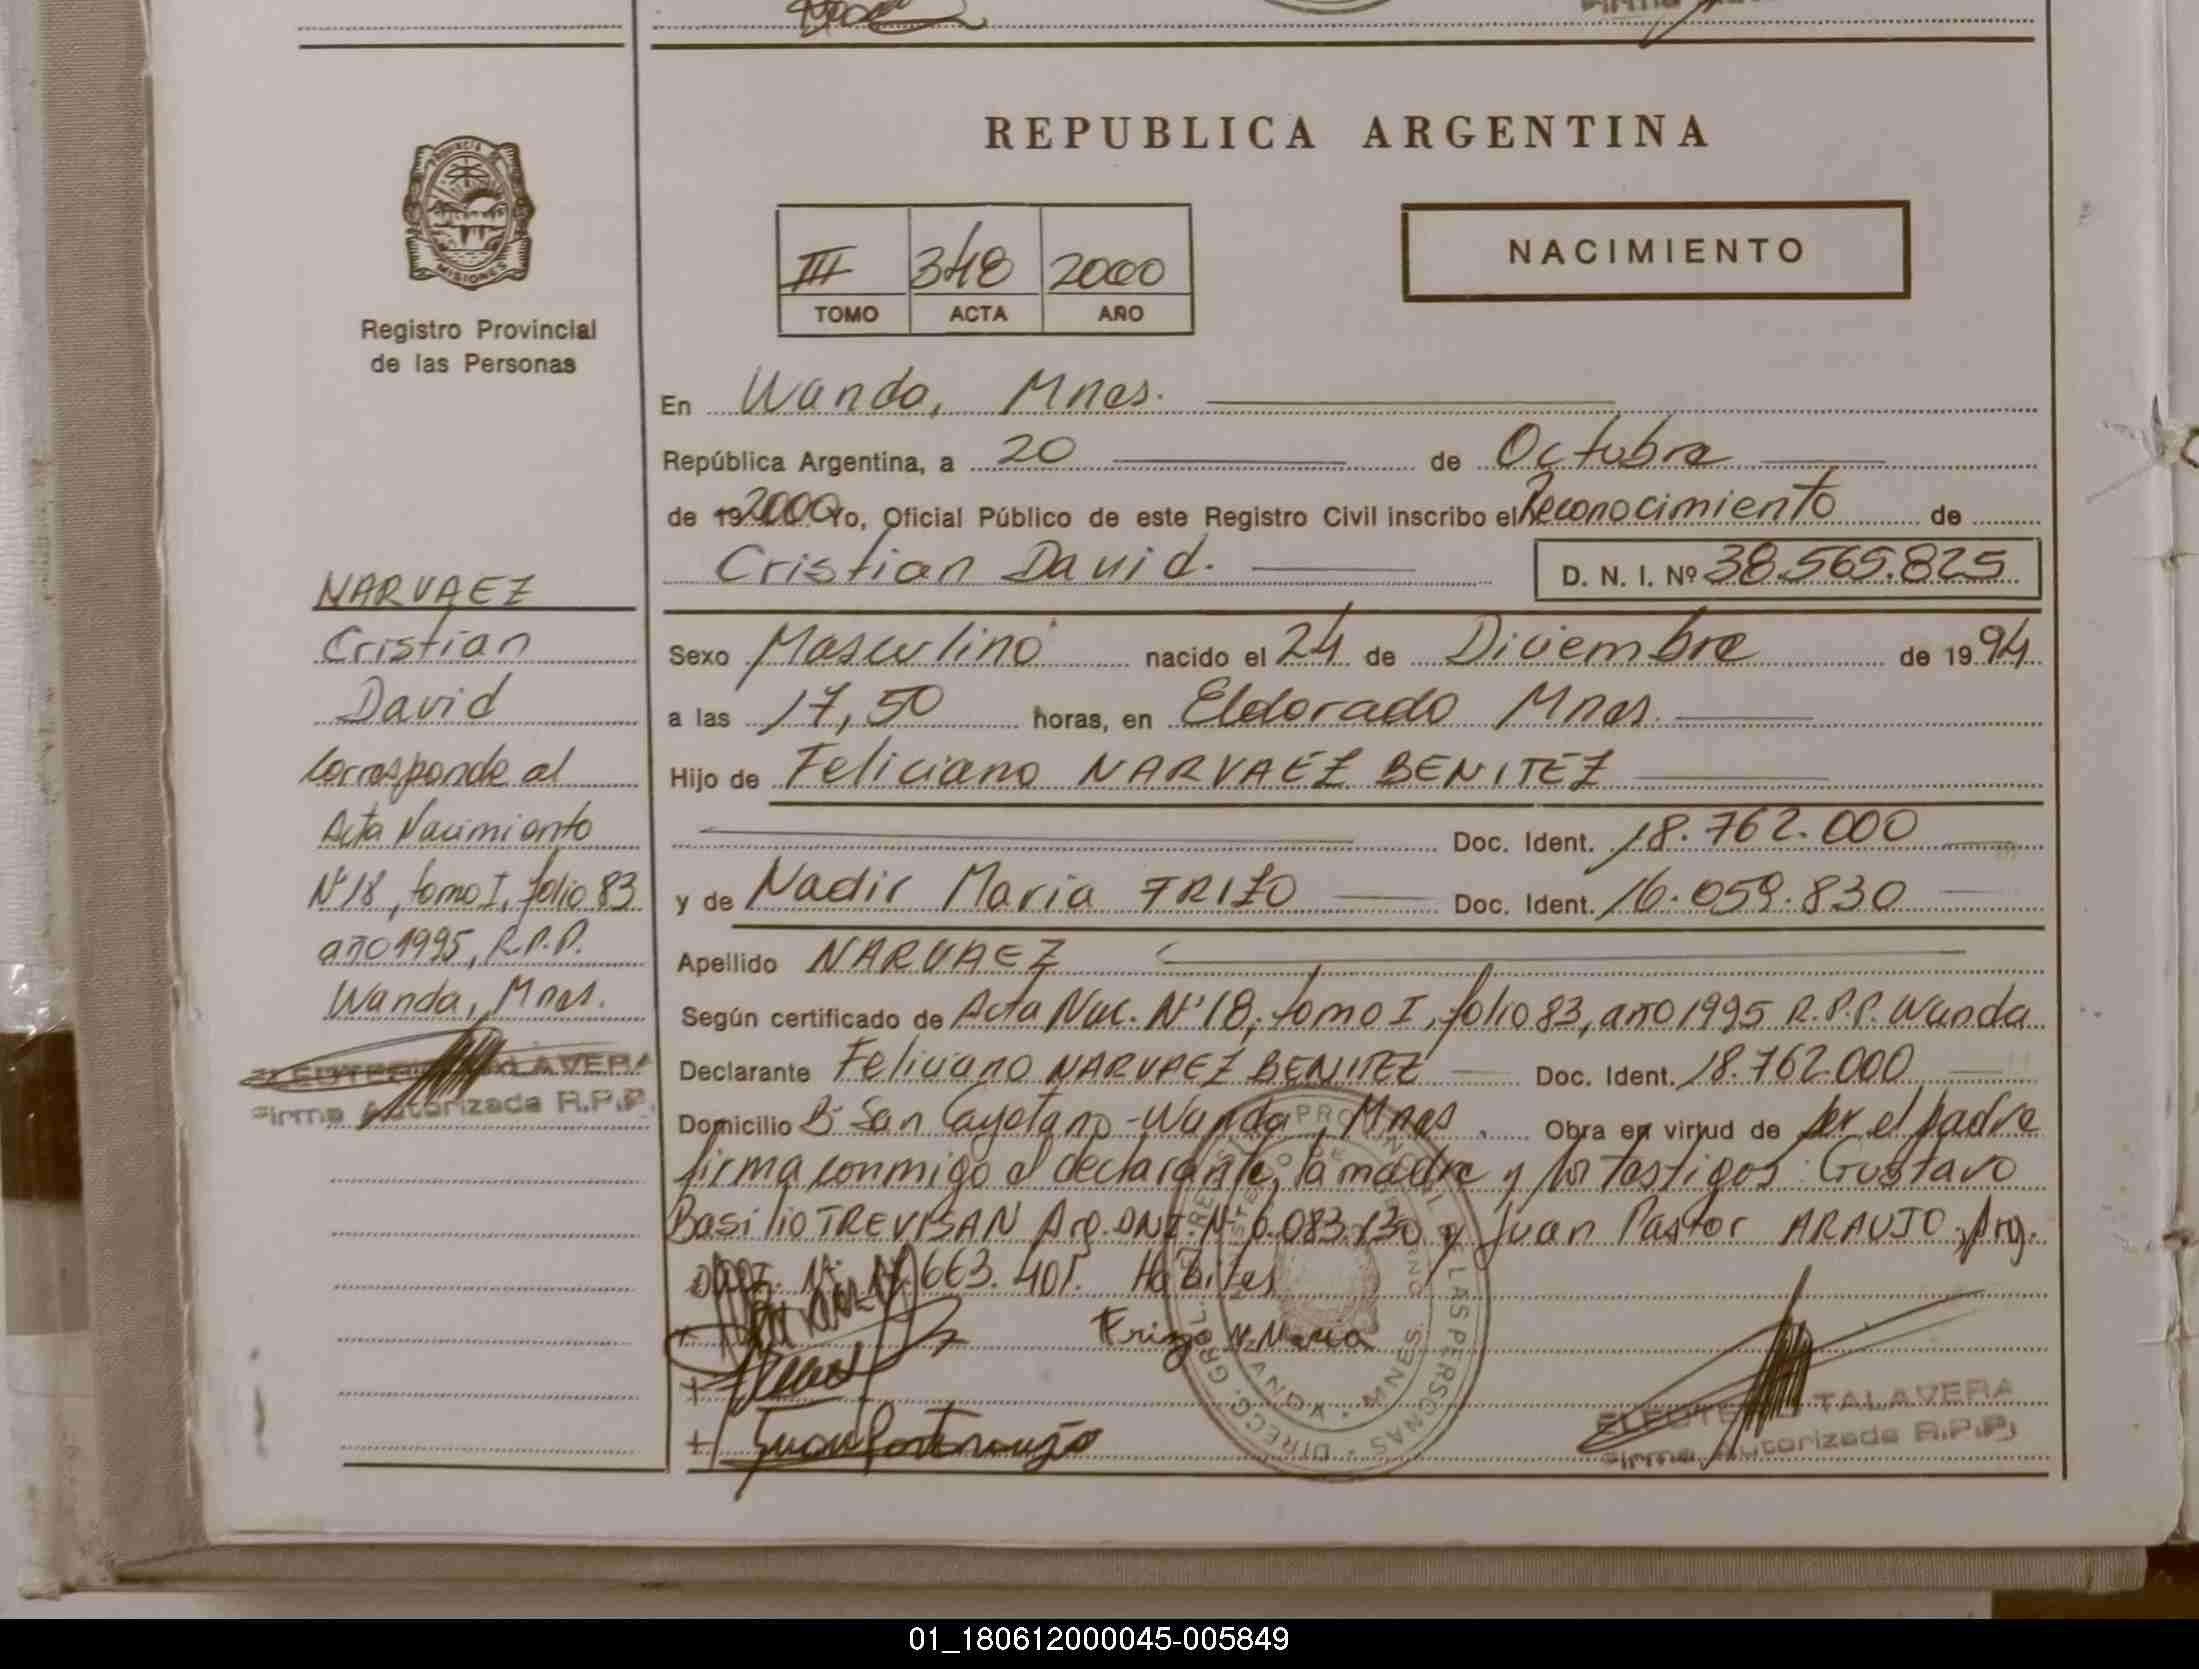 REPUBLICA ARGENTINA
PROVINCIA DE
MISIONES
Registro Provincial
de las Personas
III 348 2000
TOMO ACTA AÑO
NACIMIENTO
En Wanda, Mnes.
República Argentina, a 20 de Octubre
de 19 2000 Yo, Oficial Público de este Registro Civil inscribo el Reconocimiento de
Cristian David. D. N. I. Nº 38.565.825
Sexo Masculino nacido el 24 de Diciembre de 1994
a las 17,50 horas, en Eldorado Mnes.
Hijo de Feliciano NARVAEZ BENITEZ
Doc. Ident. 18.762.000
y de Nadir Maria FRIZO Doc. Ident. 16.059.830
Apellido NARVAEZ
Según certificado de Acta Nac. Nº 18, tomo I, folio 83, año 1995 R.P.P. Wanda
Declarante Feliciano NARVAEZ BENITEZ Doc. Ident. 18.762.000
Domicilio Bº San Cayetano - Wanda, Mnes. Obra en virtud de ser el padre
firma conmigo el declarante, la madre y los testigos: Gustavo
Basilio TREVISAN Arg. DNI. Nº 6.083.130 y Juan Pastor ARAUJO, Arg.
663.401. Habiles
Frizo N. Maria
ELEUTERIO TALAVERA
Firma Autorizada R.P.P.
NARVAEZ
Cristian
David
Corresponde al
Acta Nacimiento
Nº 18, tomo I, folio 83
año 1995, R.P.P.
Wanda, Mnes.
ELEUTERIO TALAVERA
Firma Autorizada R.P.P.
01_180612000045-005849